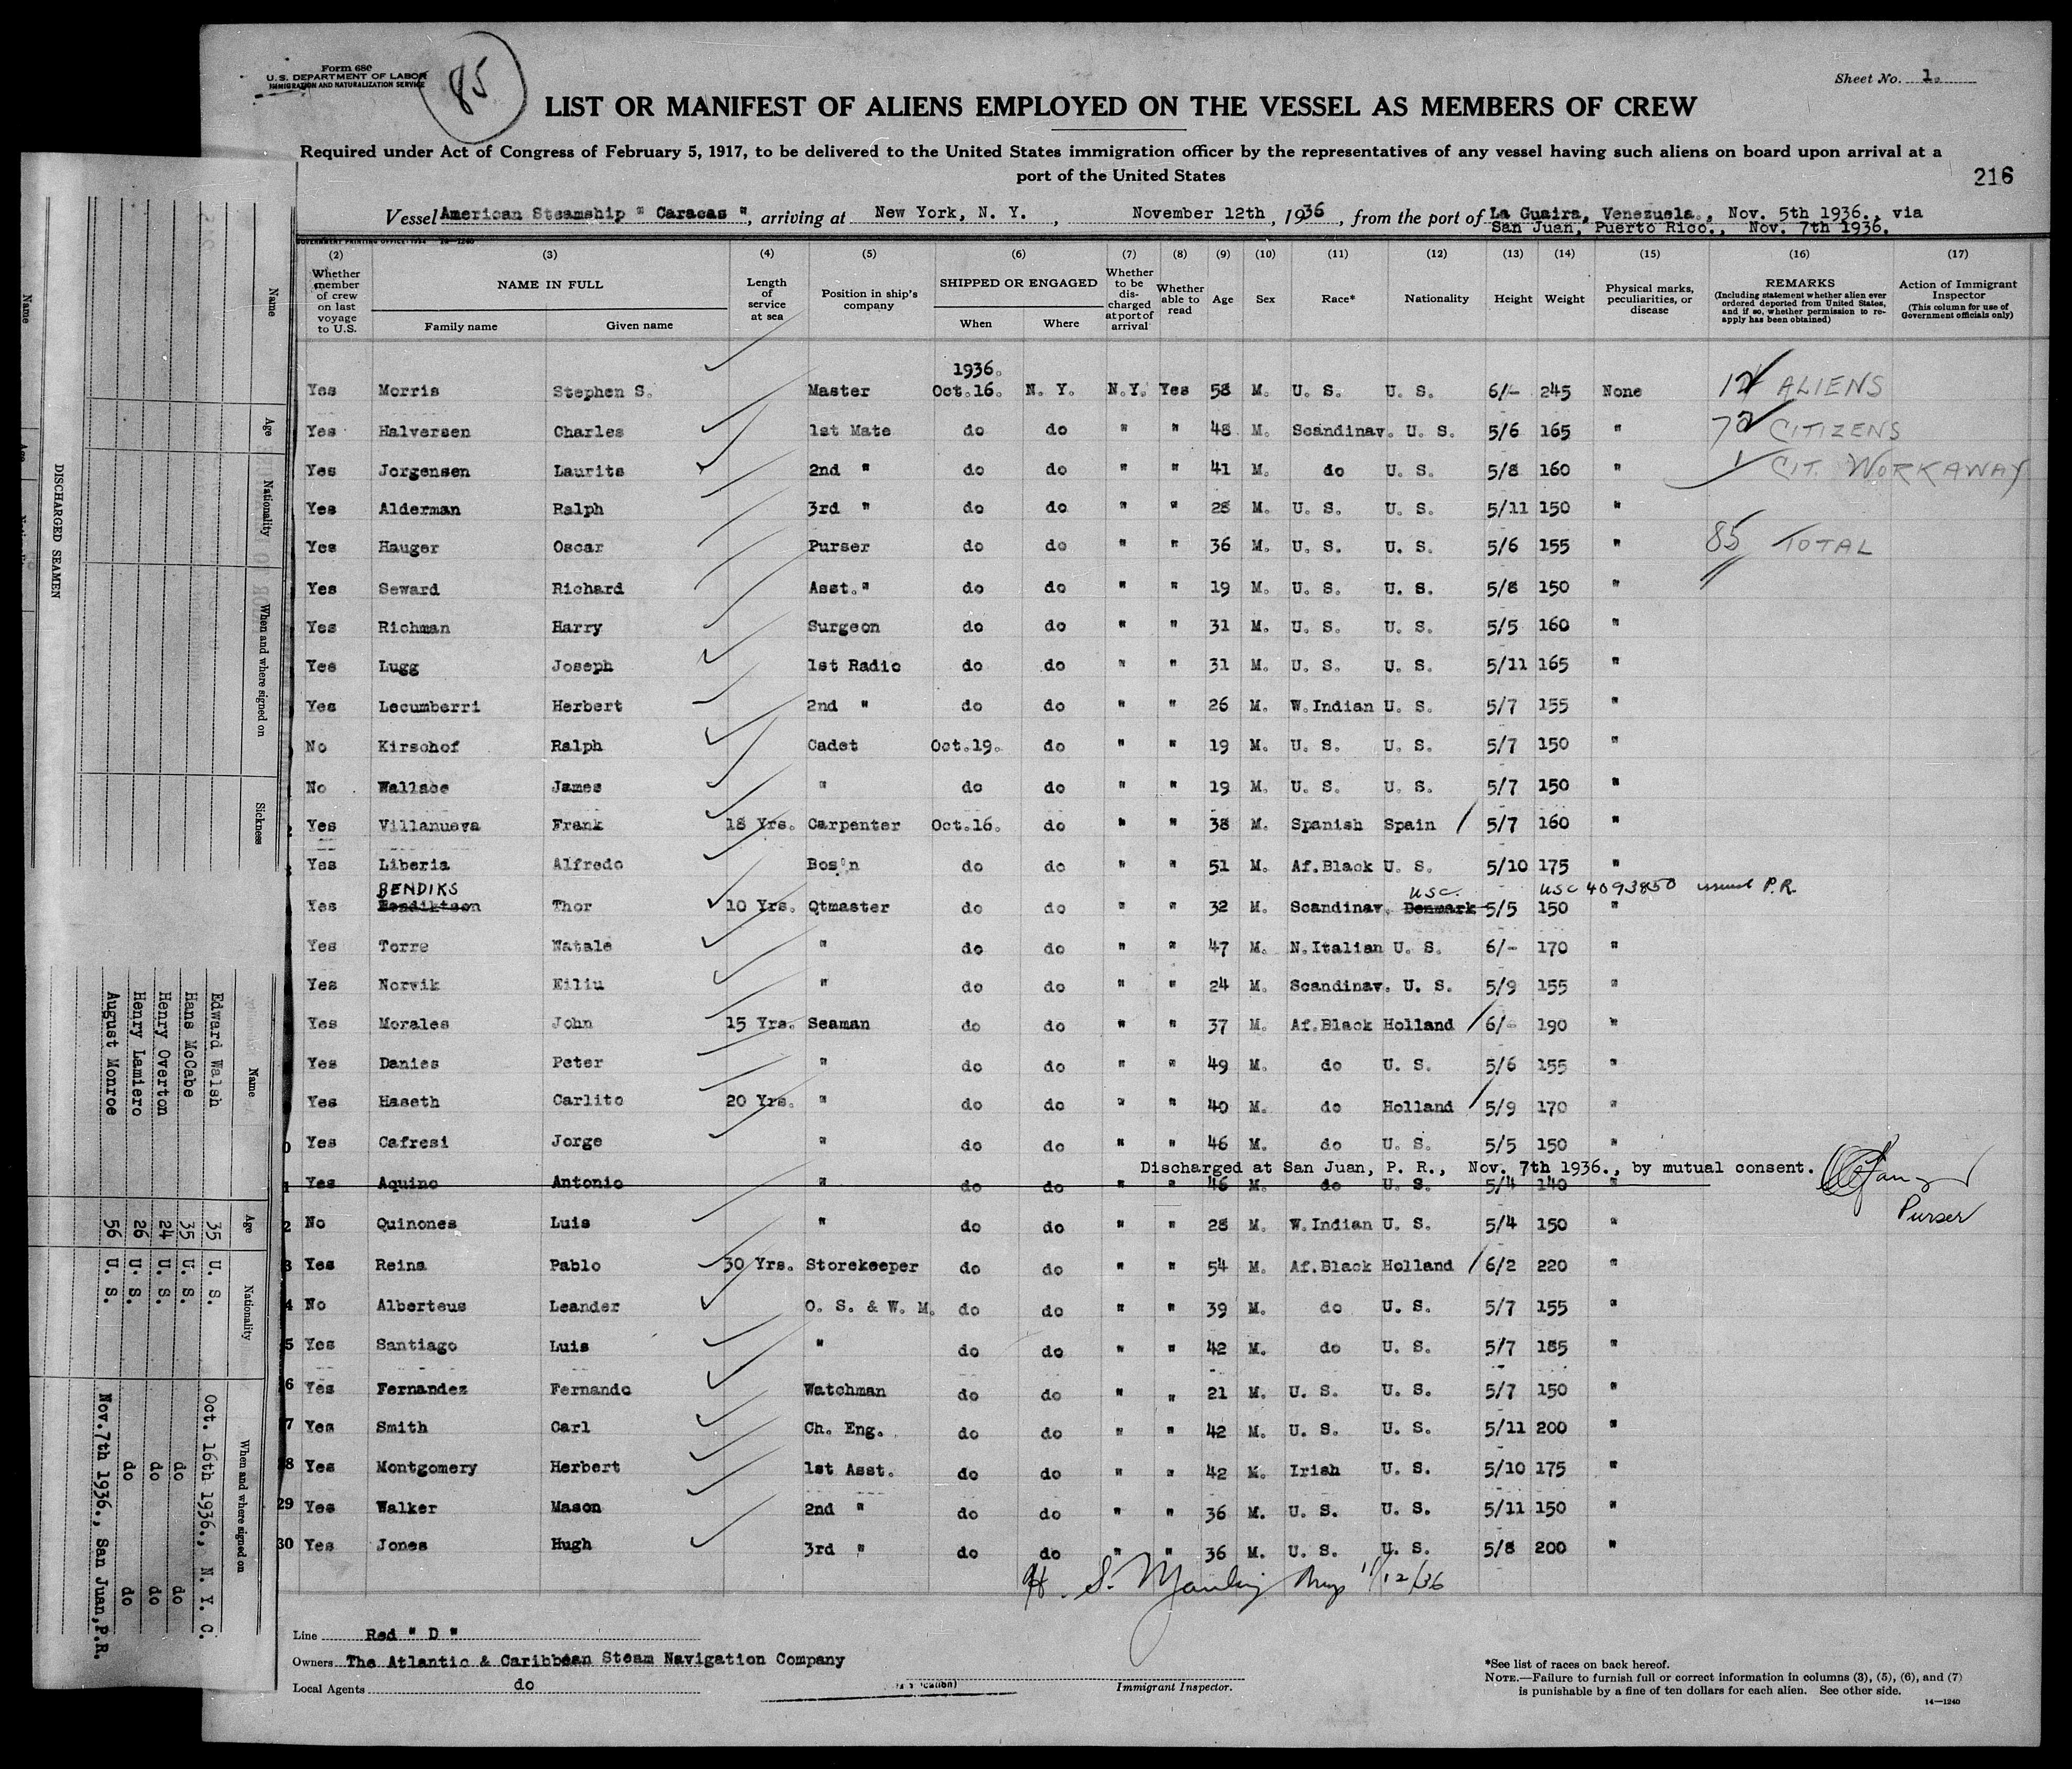 Form 680
U. S. DEPARTMENT OF LABOR
IMMIGRATION AND NATURALIZATION SERVICE
85
Sheet No. 1.
LIST OR MANIFEST OF ALIENS EMPLOYED ON THE VESSEL AS MEMBERS OF CREW
Required under Act of Congress of February 5, 1917, to be delivered to the United States immigration officer by the representatives of any vessel having such aliens on board upon arrival at a
port of the United States
216
Vessel American Steamship " Caracas ", arriving at New York, N. Y. , November 12th , 1936 , from the port of La Guaira, Venezuela., Nov. 5th 1936., via
San Juan, Puerto Rico., Nov. 7th 1936.
(2) (3) (4) (5) (6) (7) (8) (9) (10) (11) (12) (13) (14) (15) (16) (17)
Whether member of crew on last voyage to U.S. NAME IN FULL Family name Given name Length of service at sea Position in ship's company SHIPPED OR ENGAGED When Where Whether to be discharged at port of arrival Whether able to read Age Sex Race* Nationality Height Weight Physical marks, peculiarities, or disease REMARKS (Including statement whether alien ever ordered deported from United States, and if so, whether permission to reapply has been obtained) Action of Immigrant Inspector (This column for use of Government officials only)
1936.
Yes Morris Stephen S. Master Oct.16. N. Y. N.Y. Yes 58 M. U. S. U. S. 6/- 245 None 12 ALIENS
Yes Halversen Charles 1st Mate do do " " 48 M. Scandinav. U. S. 5/6 165 " 72 CITIZENS
Yes Jorgensen Laurits 2nd " do do " " 41 M. do U. S. 5/8 160 " 1 CIT. WORKAWAY
Yes Alderman Ralph 3rd " do do " " 28 M. U. S. U. S. 5/11 150 "
Yes Hauger Oscar Purser do do " " 36 M. U. S. U. S. 5/6 155 " 85 TOTAL
Yes Seward Richard Asst." do do " " 19 M. U. S. U. S. 5/8 150 "
Yes Richman Harry Surgeon do do " " 31 M. U. S. U. S. 5/5 160 "
Yes Lugg Joseph 1st Radio do do " " 31 M. U. S. U. S. 5/11 165 "
Yes Lecumberri Herbert 2nd " do do " " 26 M. W.Indian U. S. 5/7 155 "
No Kirschof Ralph Cadet Oct.19. do " " 19 M. U. S. U. S. 5/7 150 "
No Wallace James " do do " " 19 M. U. S. U. S. 5/7 150 "
Yes Villanueva Frank 18 Yrs. Carpenter Oct.16. do " " 38 M. Spanish Spain / 5/7 160 "
Yes Liberia Alfredo Bos'n do do " " 51 M. Af.Black U. S. 5/10 175 "
BENDIKS USC. USC 4093850 issued P.R.
Yes Bendiktsen Thor 10 Yrs. Qtmaster do do " " 32 M. Scandinav. Denmark 5/5 150 "
Yes Torre Natale " do do " " 47 M. N.Italian U. S. 6/- 170 "
Yes Norvik Eiliu " do do " " 24 M. Scandinav. U. S. 5/9 155 "
Yes Morales John 15 Yrs. Seaman do do " " 37 M. Af.Black Holland / 6/- 190 "
Yes Danies Peter " do do " " 49 M. do U. S. 5/6 155 "
Yes Haseth Carlito 20 Yrs. " do do " " 40 M. do Holland / 5/9 170 "
0 Yes Cafresi Jorge " do do " " 46 M. do U. S. 5/5 150 "
Discharged at San Juan, P. R., Nov. 7th 1936., by mutual consent.
1 Yes Aquino Antonio " do do " " 46 M. do U. S. 5/4 140 "
Purser
2 No Quinones Luis " do do " " 28 M. W.Indian U. S. 5/4 150 "
3 Yes Reina Pablo 30 Yrs. Storekeeper do do " " 54 M. Af.Black Holland / 6/2 220 "
4 No Alberteus Leander O. S. & W. M. do do " " 39 M. do U. S. 5/7 155 "
5 Yes Santiago Luis " do do " " 42 M. do U. S. 5/7 185 "
6 Yes Fernandez Fernando Watchman do do " " 21 M. U. S. U. S. 5/7 150 "
7 Yes Smith Carl Ch. Eng. do do " " 42 M. U. S. U. S. 5/11 200 "
8 Yes Montgomery Herbert 1st Asst. do do " " 42 M. Irish U. S. 5/10 175 "
29 Yes Walker Mason 2nd " do do " " 36 M. U. S. U. S. 5/11 150 "
30 Yes Jones Hugh 3rd " do do " " 36 M. U. S. U. S. 5/8 200 "
11/12/36
Line Red " D "
Owners The Atlantic & Caribbean Steam Navigation Company
Local Agents do
Immigrant Inspector.
*See list of races on back hereof.
NOTE.—Failure to furnish full or correct information in columns (3), (5), (6), and (7)
is punishable by a fine of ten dollars for each alien. See other side.
14—1240
DISCHARGED SEAMEN
Name Age Nationality When and where signed on Sickness
Name Age Nationality When and where signed on
Edward Walsh 35 U. S. Oct. 16th 1936., N. Y. C.
Hans McCabe 35 U. S. do do
Henry Overton 24 U. S. do do
Henry Lamiero 26 U. S. do do
August Monroe 56 U. S. Nov.7th 1936., San Juan,P.R.